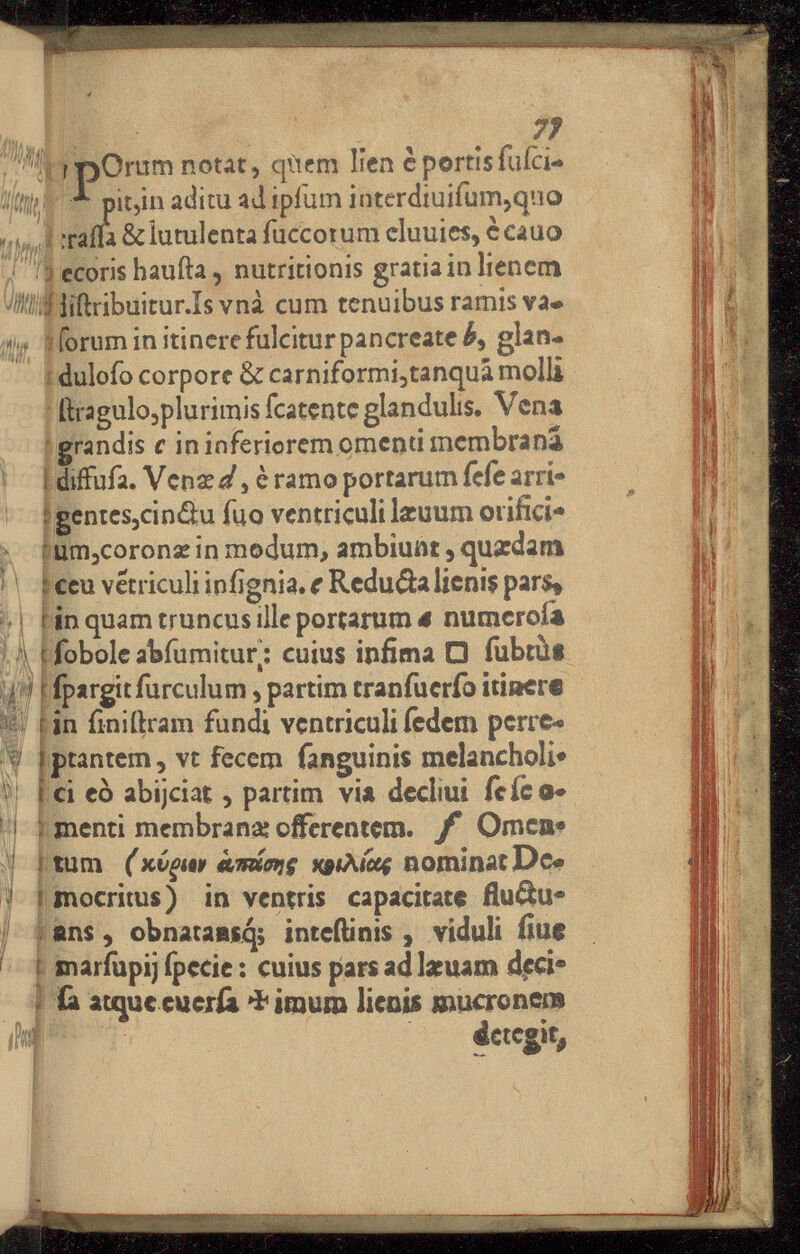 77
pOrum notat, quem lien è portis ſuſci-
pit,in aditu ad ipſum interdiuiſum,quo
raſſa & lutulenta ſuccorum eluuies, è cauo
ecoris hauſta, nutritionis gratia in lienem
diſtribuitur.Is vnà cum tenuibus ramis va-
ſorum in itinere fulcitur pancreate b, glan-
duloſo corpore & carniformi,tanquã molli
ſtragulo,plurimis ſcatente glandulis. Vena
grandis c in inferiorem omenti membranã
diffuſa. Venæ d, è ramo portarum ſeſe arri-
gentes,cinctu ſuo ventriculi læuum orifici-
um,coronæ in modum, ambiunt, quædam
ceu vẽtriculi inſignia. e Reducta lienis pars,
in quam truncus ille portarum a numeroſa
ſobole abſumitur: cuius infima □ ſubtùs
ſpargit ſurculum, partim tranſuerſo itinere
in ſiniſtram fundi ventriculi ſedem perre-
ptantem, vt fecem ſanguinis melancholi-
ci eò abijciat, partim via decliui ſeſe o-
menti membranæ offerentem. f Omen-
tum (κύριον ἁπάσης κοιλίας nominat De-
mocritus) in ventris capacitate fluctu-
ans, obnatansq́; inteſtinis, viduli ſiue
marſupij ſpecie: cuius pars ad læuam deci-
ſa atque euerſa * imum lienis mucronem
detegit,